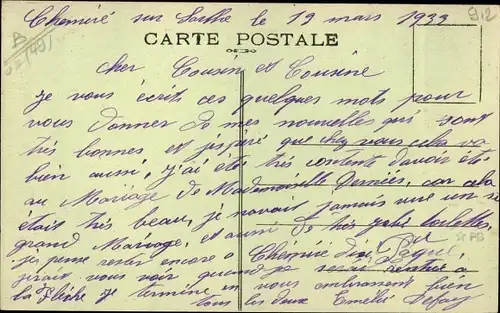 Chemiré sur Sarthe le 19 mars 1933
CARTE POSTALE
912
B
72 (49)
cher Cousin et Cousine
je vous écrit ces quelques mots pour
vous donner de mes nouvelles qui sont
très bonnes et j'espère que chez vous cela va
bien aussi, j'ai été très contente d'avoir été
au Mariage de Mademoiselle car cela
était très beau, je n'avais jamais vue un si
grand Mariage, et aussi de très jolies toilettes.
je pense rester encore à Chemiré
jirais vous voir quand je serai rentrée à
la Flèche je termine en vous embrassant bien
tous les deux Emélie